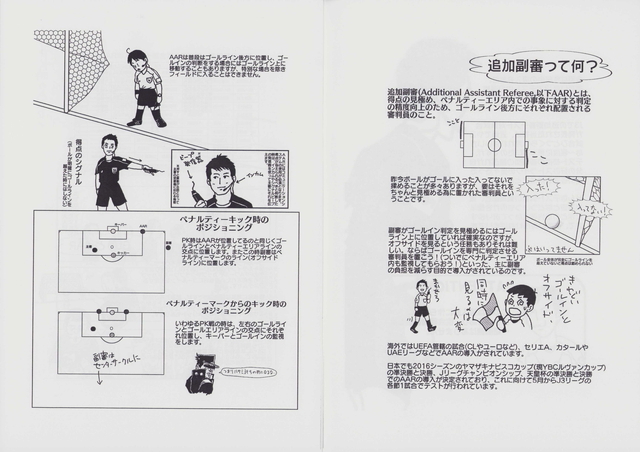 追加副審って何?
追加副審(Additional Assistant Referee,以下AAR)とは、
得点の見極め、ペナルティーエリア内での事象に対する判定
の精度向上のため、ゴールライン後方にそれぞれ配置される
審判員のこと。
ここ
ここ
昨今ボールがゴールに入った入ってないで
揉めることが多々ありますが、要はそれを
ちゃんと見極める為に置かれた審判員とい
うことです。
入った!
入ってない!
副審がゴールイン判定を見極めるにはゴール
ライン上に位置していれば確実なのですが、
オフサイドを見るという任務もありそれは難
しい。ならばゴールインを専門に判定させる
審判員を置こう!(ついでにペナルティーエリア
内も監視してもらおう!)といった、主に副審
の負担を減らす目的で導入がされているのです。
ゴールインと
オフサイド、
同時に
見るのは
大変
海外ではUEFA管轄の試合(CLやユーロなど)、セリエA、カタールや
UAEリーグなどでAARの導入がされています。
日本でも2016シーズンのヤマザキナビスコカップ(現YBCルヴァンカップ)
の準決勝と決勝、Jリーグチャンピオンシップ、天皇杯の準決勝と決勝
でのAARの導入が決定されており、これに向けて5月からJ3リーグの
各節1試合でテストが行われています。
AARは普段はゴールライン後方に位置し、ゴー
ルインの判断をする場合にはゴールライン上に
移動することもありますが、特別な場合を除き
フィールドに入ることはできません。
得点のシグナル
ペナルティーキック時の
ポジショニング
キーパー
AAR
キッカー
PK時はAARが位置してるのと同じくゴー
ルラインとペナルティーエリアラインの
交点に位置します。またこの時副審はペ
ナルティーマークのライン(オフサイド
ライン)に位置します。
ペナルティーマークからのキック時の
ポジショニング
いわゆるPK戦の時は、左右のゴールライ
ンとゴールエリアラインの交点にそれぞ
れ位置し、キーパーとゴールインの監視
をします。
副審は
センターサークルに